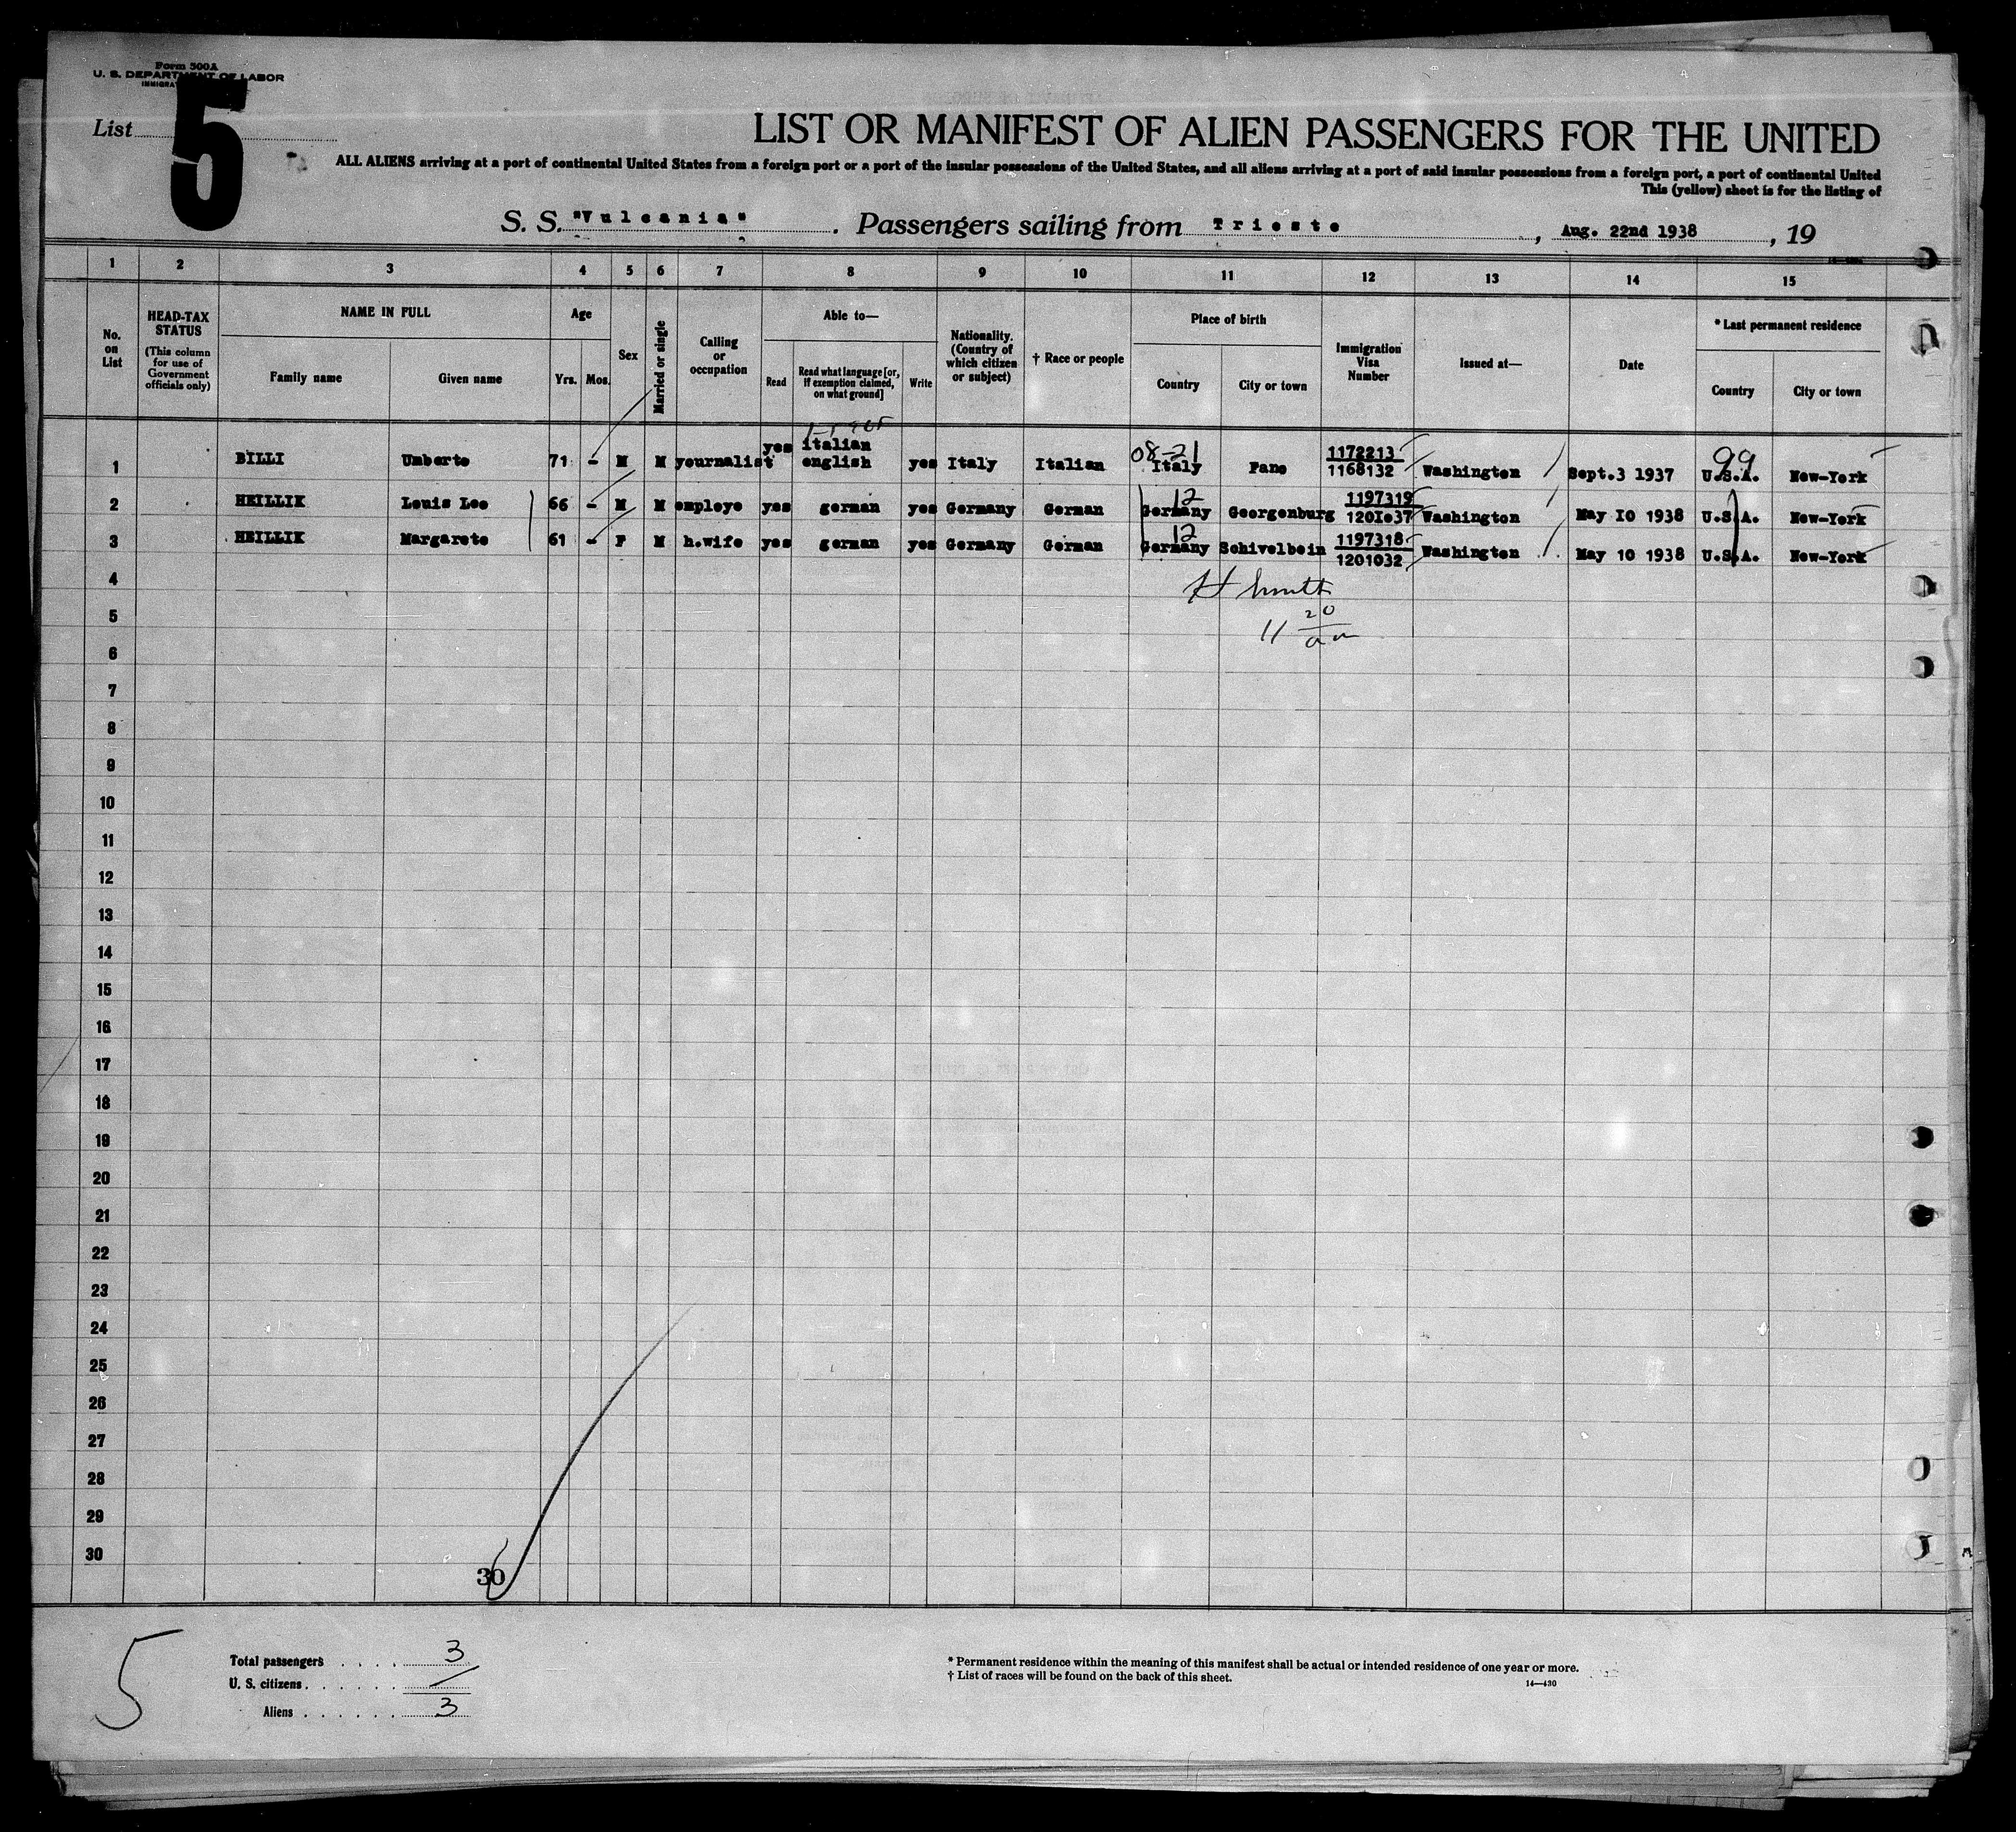 Form 500A
U. S. DEPARTMENT OF LABOR
List
5
LIST OR MANIFEST OF ALIEN PASSENGERS FOR THE UNITED
ALL ALIENS arriving at a port of continental United States from a foreign port or a port of the insular possessions of the United States, and all aliens arriving at a port of said insular possessions from a foreign port, a port of continental United
This (yellow) sheet is for the listing of
S. S. "Vulcania". Passengers sailing from Trieste, Aug. 22nd 1938, 19
1 2 3 4 5 6 7 8 9 10 11 12 13 14 15
No. on List
HEAD-TAX STATUS (This column for use of Government officials only)
NAME IN FULL
Family name
Given name
Age
Yrs. Mos.
Sex
Married or single
Calling or occupation
Able to—
Read
Read what language [or, if exemption claimed, on what ground]
Write
Nationality. (Country of which citizen or subject)
† Race or people
Place of birth
Country
City or town
Immigration Visa Number
Issued at—
Date
* Last permanent residence
Country
City or town
08-21 99
1 BILLI Umberto 71 - M M yournalist yes italian english yes Italy Italian Italy Fano 1172213 1168132 Washington Sept.3 1937 U.S.A. New-York
12
2 HEILLIK Louis Leo 66 - M M employe yes german yes Germany German Germany Georgenburg 1197319 1201037 Washington May 10 1938 U.S.A. New-York
12
3 HEILLIK Margarete 61 - F M h.wife yes german yes Germany German Germany Schivelbein 1197318 1201032 Washington May 10 1938 U.S.A. New-York
4
H Smith
5
11 20 am
6
7
8
9
10
11
12
13
14
15
16
17
18
19
20
21
22
23
24
25
26
27
28
29
30
30
5
Total passengers . . . . 3
U. S. citizens . . . . . . /
Aliens . . . . . . 3
* Permanent residence within the meaning of this manifest shall be actual or intended residence of one year or more.
† List of races will be found on the back of this sheet.
14—430